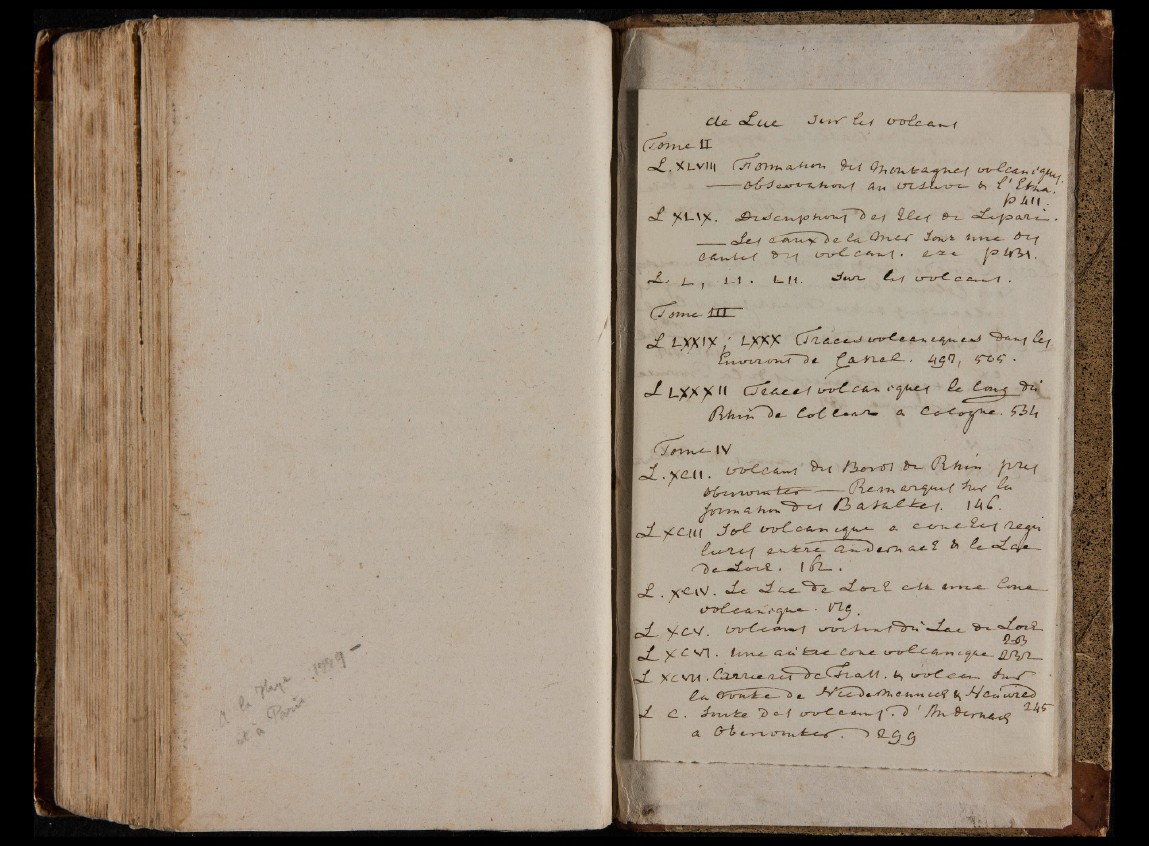 a la Haye
et à Paris 1779 -
de Luc sur les volcans
Tome II
L. XLVIII Formation des Montagnes volcaniques.
— observations au vesuve & l'Etna.
p 411.
L XLIX. Descriptions des Iles de Lipari.
— Les eaux de la Mer sont une des
causes des volcans. p 431.
L. L, LI. LII. sur les volcans.
Tome III
L LXXIX; LXXX Traces volcaniques dans les
Environs de Cassel. 497, 505.
L LXXXII Traces volcaniques le long du
Rhin de a Cologne. 534
Tome IV
L. XCII. volcans des Bords du Rhin pres
oberwinter — Remarques sur la
formation des Basaltes. 146.
L XCIII Sol volcanique a couches regu
lieres entre andernach & le Lac
de Loch. 162.
L. XCIV. Le Lac de Loch est une Cone
volcanique.
L XCV. volcans voisins du Lac de Loch
203
L XCVI. une autre cone volcanique 232
L XCVII. Carrieres de Trass. & volcan sur
la route de Niedermennich & Neuwied
245
L C. Suite des volcans. d'Andernach
a Oberwinter. 299